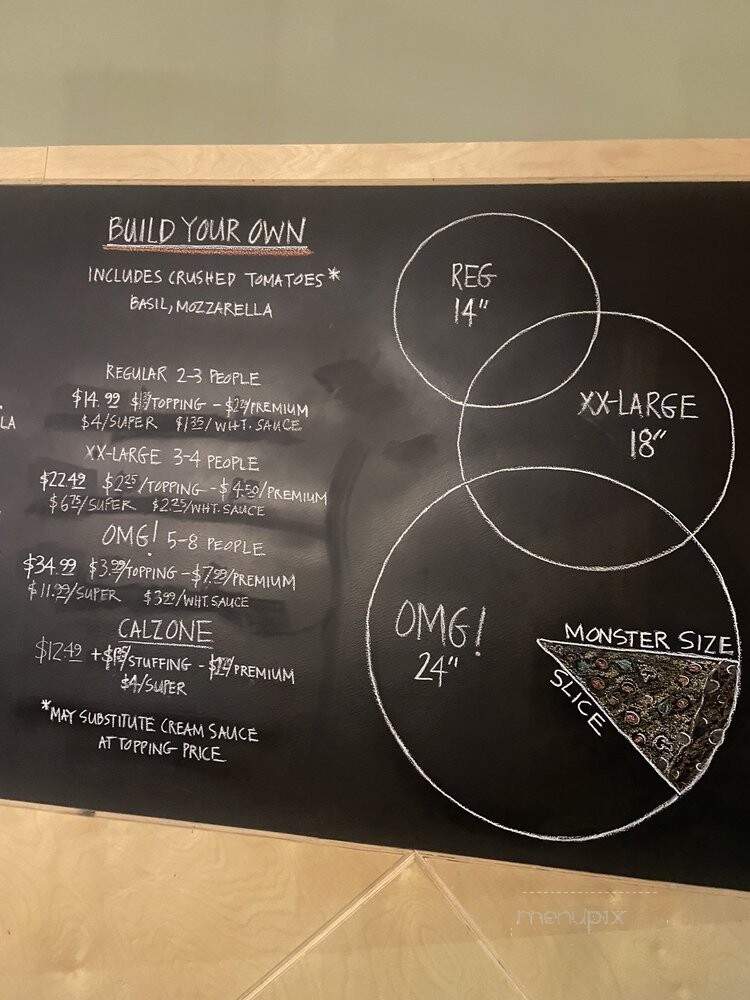 BUILD YOUR OWN
INCLUDES CRUSHED TOMATOES*
BASIL, MOZZARELLA
REGULAR 2-3 PEOPLE
$14.99 /TOPPING - /PREMIUM
$4/SUPER $1.35/WHT. SAUCE
XX-LARGE 3-4 PEOPLE
$22.49 $2.25/TOPPING - $4.50/PREMIUM
$6.75/SUPER $2.25/WHT. SAUCE
OMG! 5-8 PEOPLE
$34.99 $3.99/TOPPING - $7.99/PREMIUM
$11.99/SUPER $3.99/WHT. SAUCE
CALZONE
$12.49 + /STUFFING - /PREMIUM
$4/SUPER
*MAY SUBSTITUTE CREAM SAUCE
AT TOPPING PRICE
LA
REG
14"
XX-LARGE
18"
OMG!
24"
MONSTER SIZE
SLICE
menupix